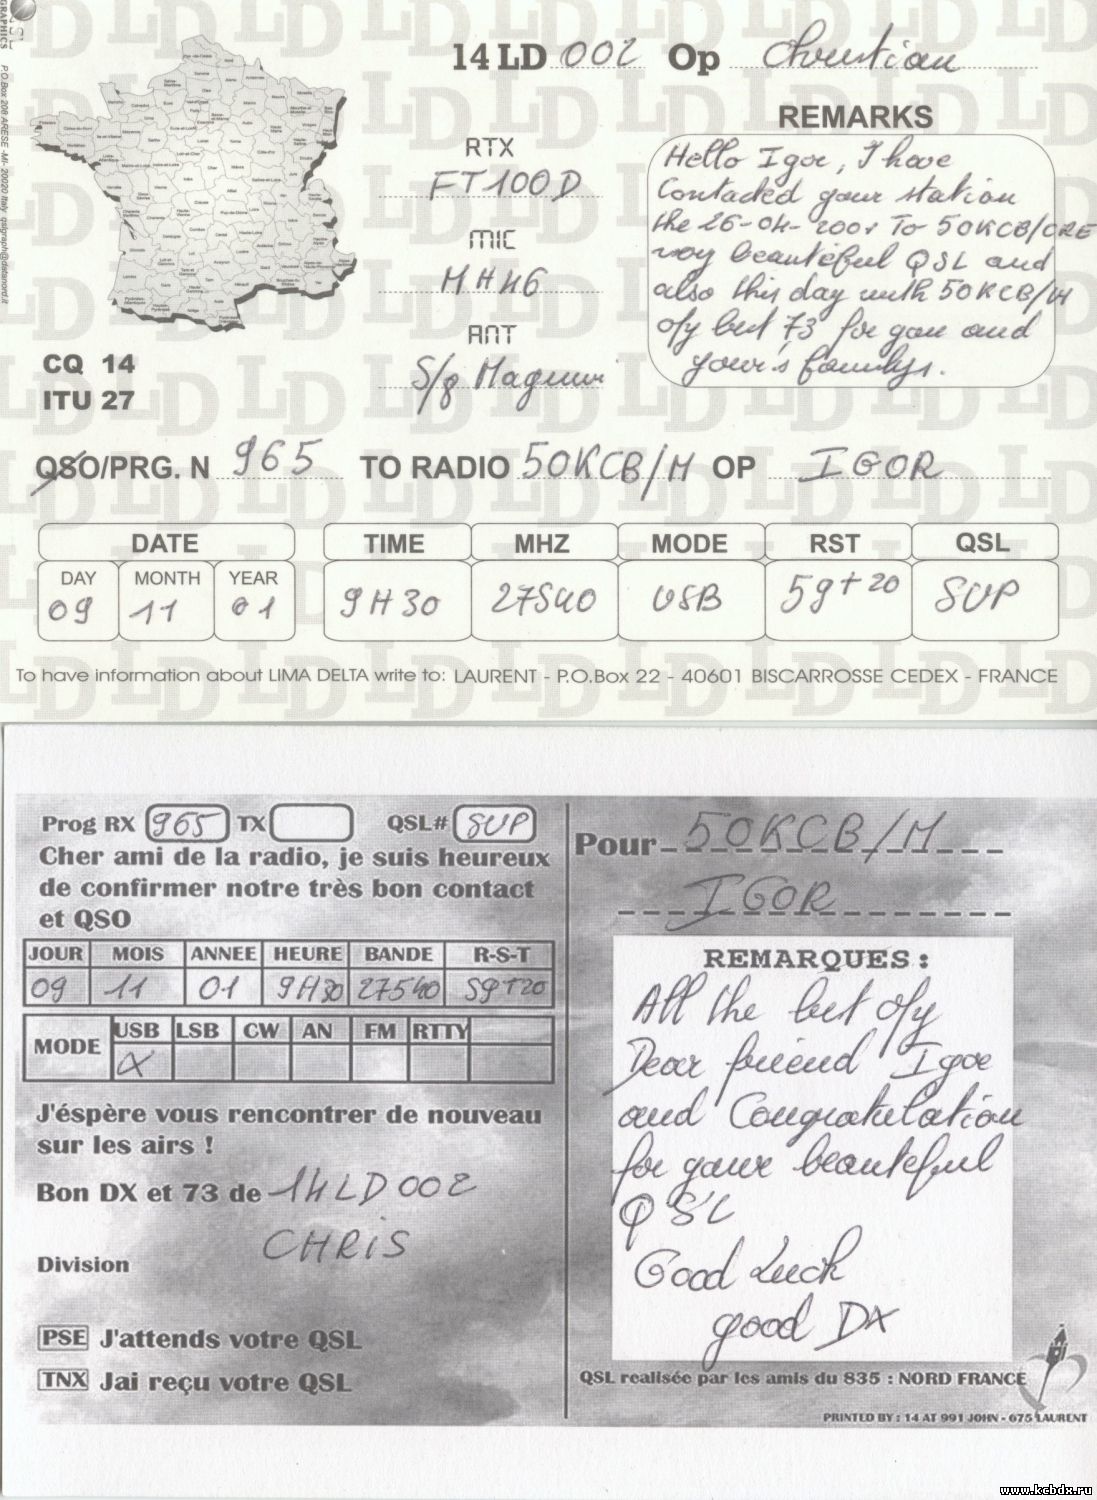 14 LD 002 Op Christian
REMARKS
Hello Igor, I have
Contacted your station
the 26-04-2001 To 50KCB/CRE
very beauteful QSL and
also this day with 50KCB/M
ofy best 73 for you and
your's familys.
RTX
FT100D
MIC
MH46
ANT
CQ 14
ITU 27
QSO/PRG. N 965 TO RADIO 50KCB/M OP IGOR
DATE TIME MHZ MODE RST QSL
DAY MONTH YEAR
09 11 01 9H30 27540 USB 59+20 SVP
To have information about LIMA DELTA write to: LAURENT - P.O.Box 22 - 40601 BISCARROSSE CEDEX - FRANCE
GRAPHICS P.O.Box 208 ARESE -MI- 20020 Italy qslgraph@datanord.it
Prog RX 965 TX QSL# SVP
Cher ami de la radio, je suis heureux
de confirmer notre très bon contact
et QSO
JOUR MOIS ANNEE HEURE BANDE R-S-T
09 11 01 9H30 27540 59+20
MODE USB LSB CW AN FM RTTY
X
J'éspère vous rencontrer de nouveau
sur les airs !
Bon DX et 73 de 14LD002
CHRIS
Division
PSE J'attends votre QSL
TNX Jai reçu votre QSL
Pour 50KCB/M
IGOR
REMARQUES :
All the best ofy
Dear friend Igor
and Congratulation
for your beauteful
QSL
Good Luck
good DX
QSL realisée par les amis du 835 : NORD FRANCE
PRINTED BY : 14 AT 991 JOHN - 675 LAURENT
www.kcbdx.ru